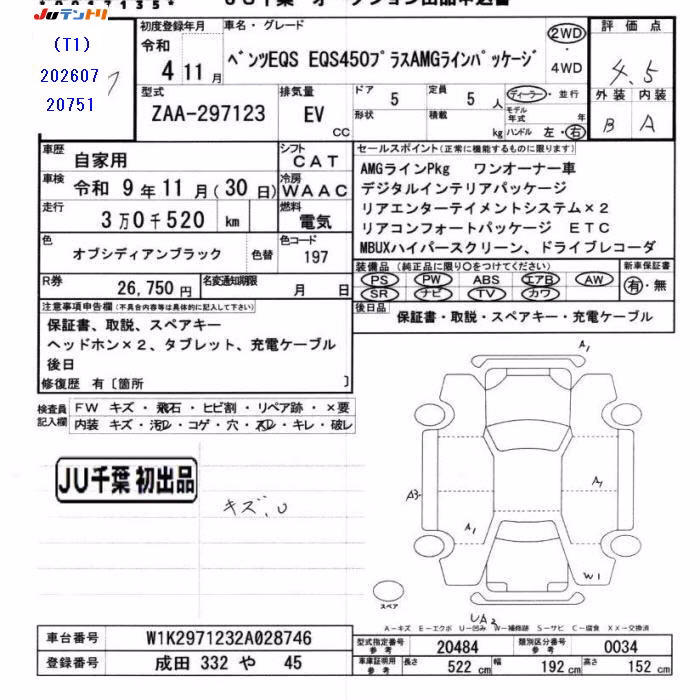 JUテントリ
(T1)
202607
20751
初度登録年月
令和
4 11月
車名・グレード
ベンツEQS EQS450プラスAMGラインパッケージ
2WD
4WD
評価点
4.5
外装 内装
B A
型式
ZAA-297123
排気量
EV
CC
ドア
5
形状
定員
5 人
積載
kg
ディーラー・並行
モデル年式 年
ハンドル 左・右
車歴
自家用
シフト
CAT
車検
令和 9年11月(30日)
冷房
WAAC
走行
3万0千520 km
燃料
電気
色
オブシディアンブラック
色替
色コード
197
R券
26,750円
名変通知期限
月 日
セールスポイント(正常に機能するものに限ります)
AMGラインPkg ワンオーナー車
デジタルインテリアパッケージ
リアエンターテイメントシステム×2
リアコンフォートパッケージ ETC
MBUXハイパースクリーン、ドライブレコーダ
装備品(純正品に限り○をつけてください)
PS PW ABS エアB AW
SR ナビ TV カワ
新車保証書
有・無
後日品
保証書・取説・スペアキー・充電ケーブル
注意事項申告欄(不具合内容等は具体的に記入して下さい)
保証書、取説、スペアキー
ヘッドホン×2、タブレット、充電ケーブル
後日
修復歴 有〔箇所 〕
検査員記入欄
FW キズ・飛石・ヒビ割・リペア跡・×要
内装 キズ・汚レ・コゲ・穴・スレ・キレ・破レ
JU千葉 初出品
キズ、U
A1
A3
A1
A1
W1
UA2
スペア
A-キズ E-エクボ U-凹み W-補修跡 S-サビ C-腐食 XX-交換済
車台番号
W1K2971232A028746
登録番号
成田 332 や 45
型式指定番号 参考
20484
類別区分番号 参考
0034
車庫証明用 参考
長さ 522 cm
幅 192 cm
高さ 152 cm